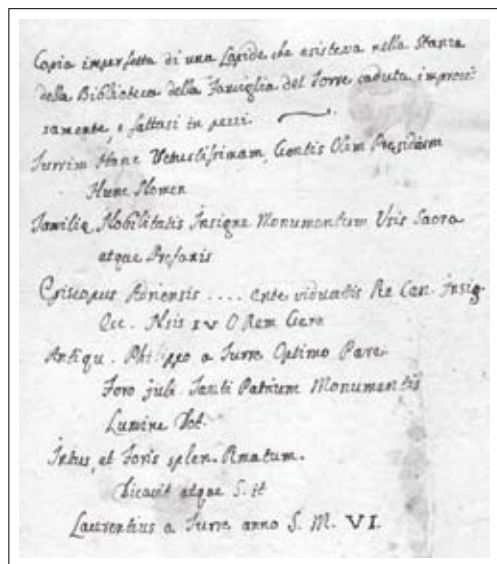 Copia imperfetta di una Lapide che esisteva nella Stanza
della Biblioteca della Famiglia del Torre caduta improvi:
samente, e fattasi in pezzi.
Turrim Hanc Vetustissimam Gentis Olim Presidium
Hunc Nomen
Familiæ Nobilitatis Insigne Monumentum Usis Sacra
atque Profanis
Episcopus Adriensis .... ente viduatis Re Can. Insig.
Occ. Nsis IV O Rem Gere
Antiqu. Philippo a Turre Optimo Pare
Foro Juli Tanti Patrium Monumentis
Lumine Dot.
Intus, et Foris splen. Rnatum.
Dicavit atque S. it
Laurentius a Turre anno S. M. VI.